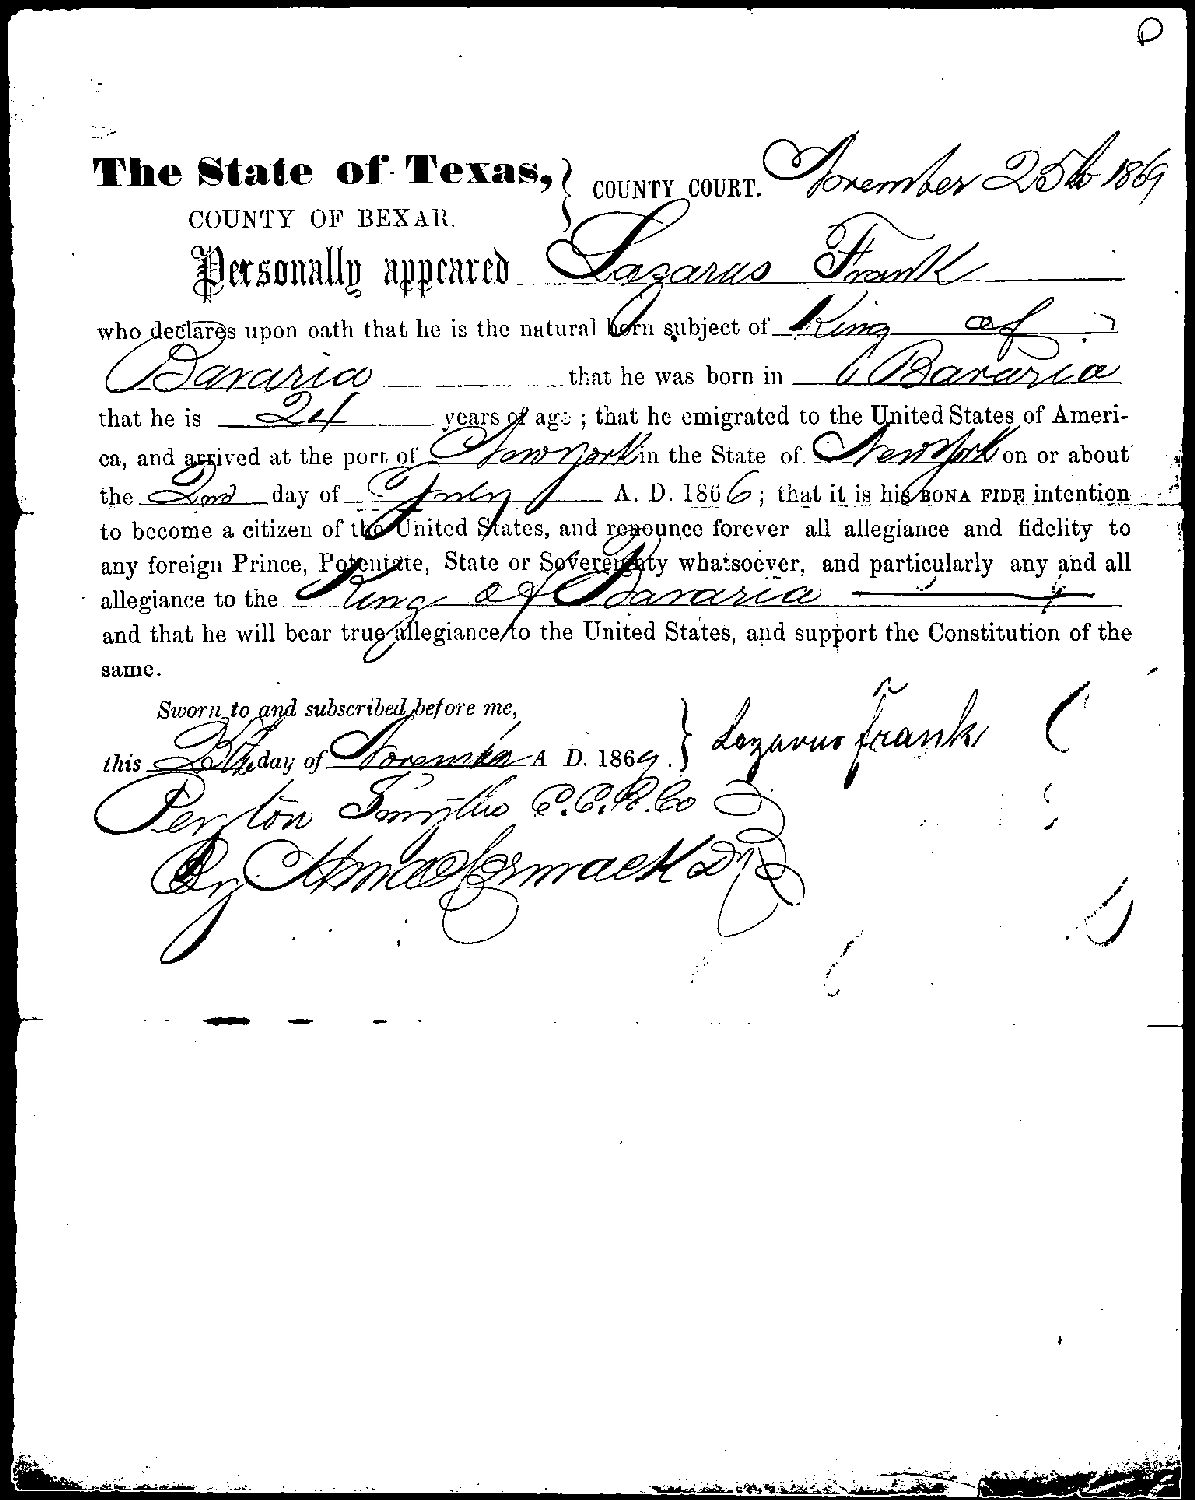 The State of Texas, } COUNTY COURT. November 25th 1869
COUNTY OF BEXAR.
Personally appeared Lazarus Frank
who declares upon oath that he is the natural born subject of King of
Bavaria that he was born in Bavaria
that he is 24 years of age; that he emigrated to the United States of Ameri-
ca, and arrived at the port of New York in the State of New York on or about
the 2nd day of July A. D. 1866; that it is his BONA FIDE intention
to become a citizen of the United States, and renounce forever all allegiance and fidelity to
any foreign Prince, Potentate, State or Sovereignty whatsoever, and particularly any and all
allegiance to the King of Bavaria
and that he will bear true allegiance to the United States, and support the Constitution of the
same.
Sworn to and subscribed before me,
this 25th day of November A D. 1869. } Lazarus Frank
Peyton Smythe C.C.B.Co
By McCormack D